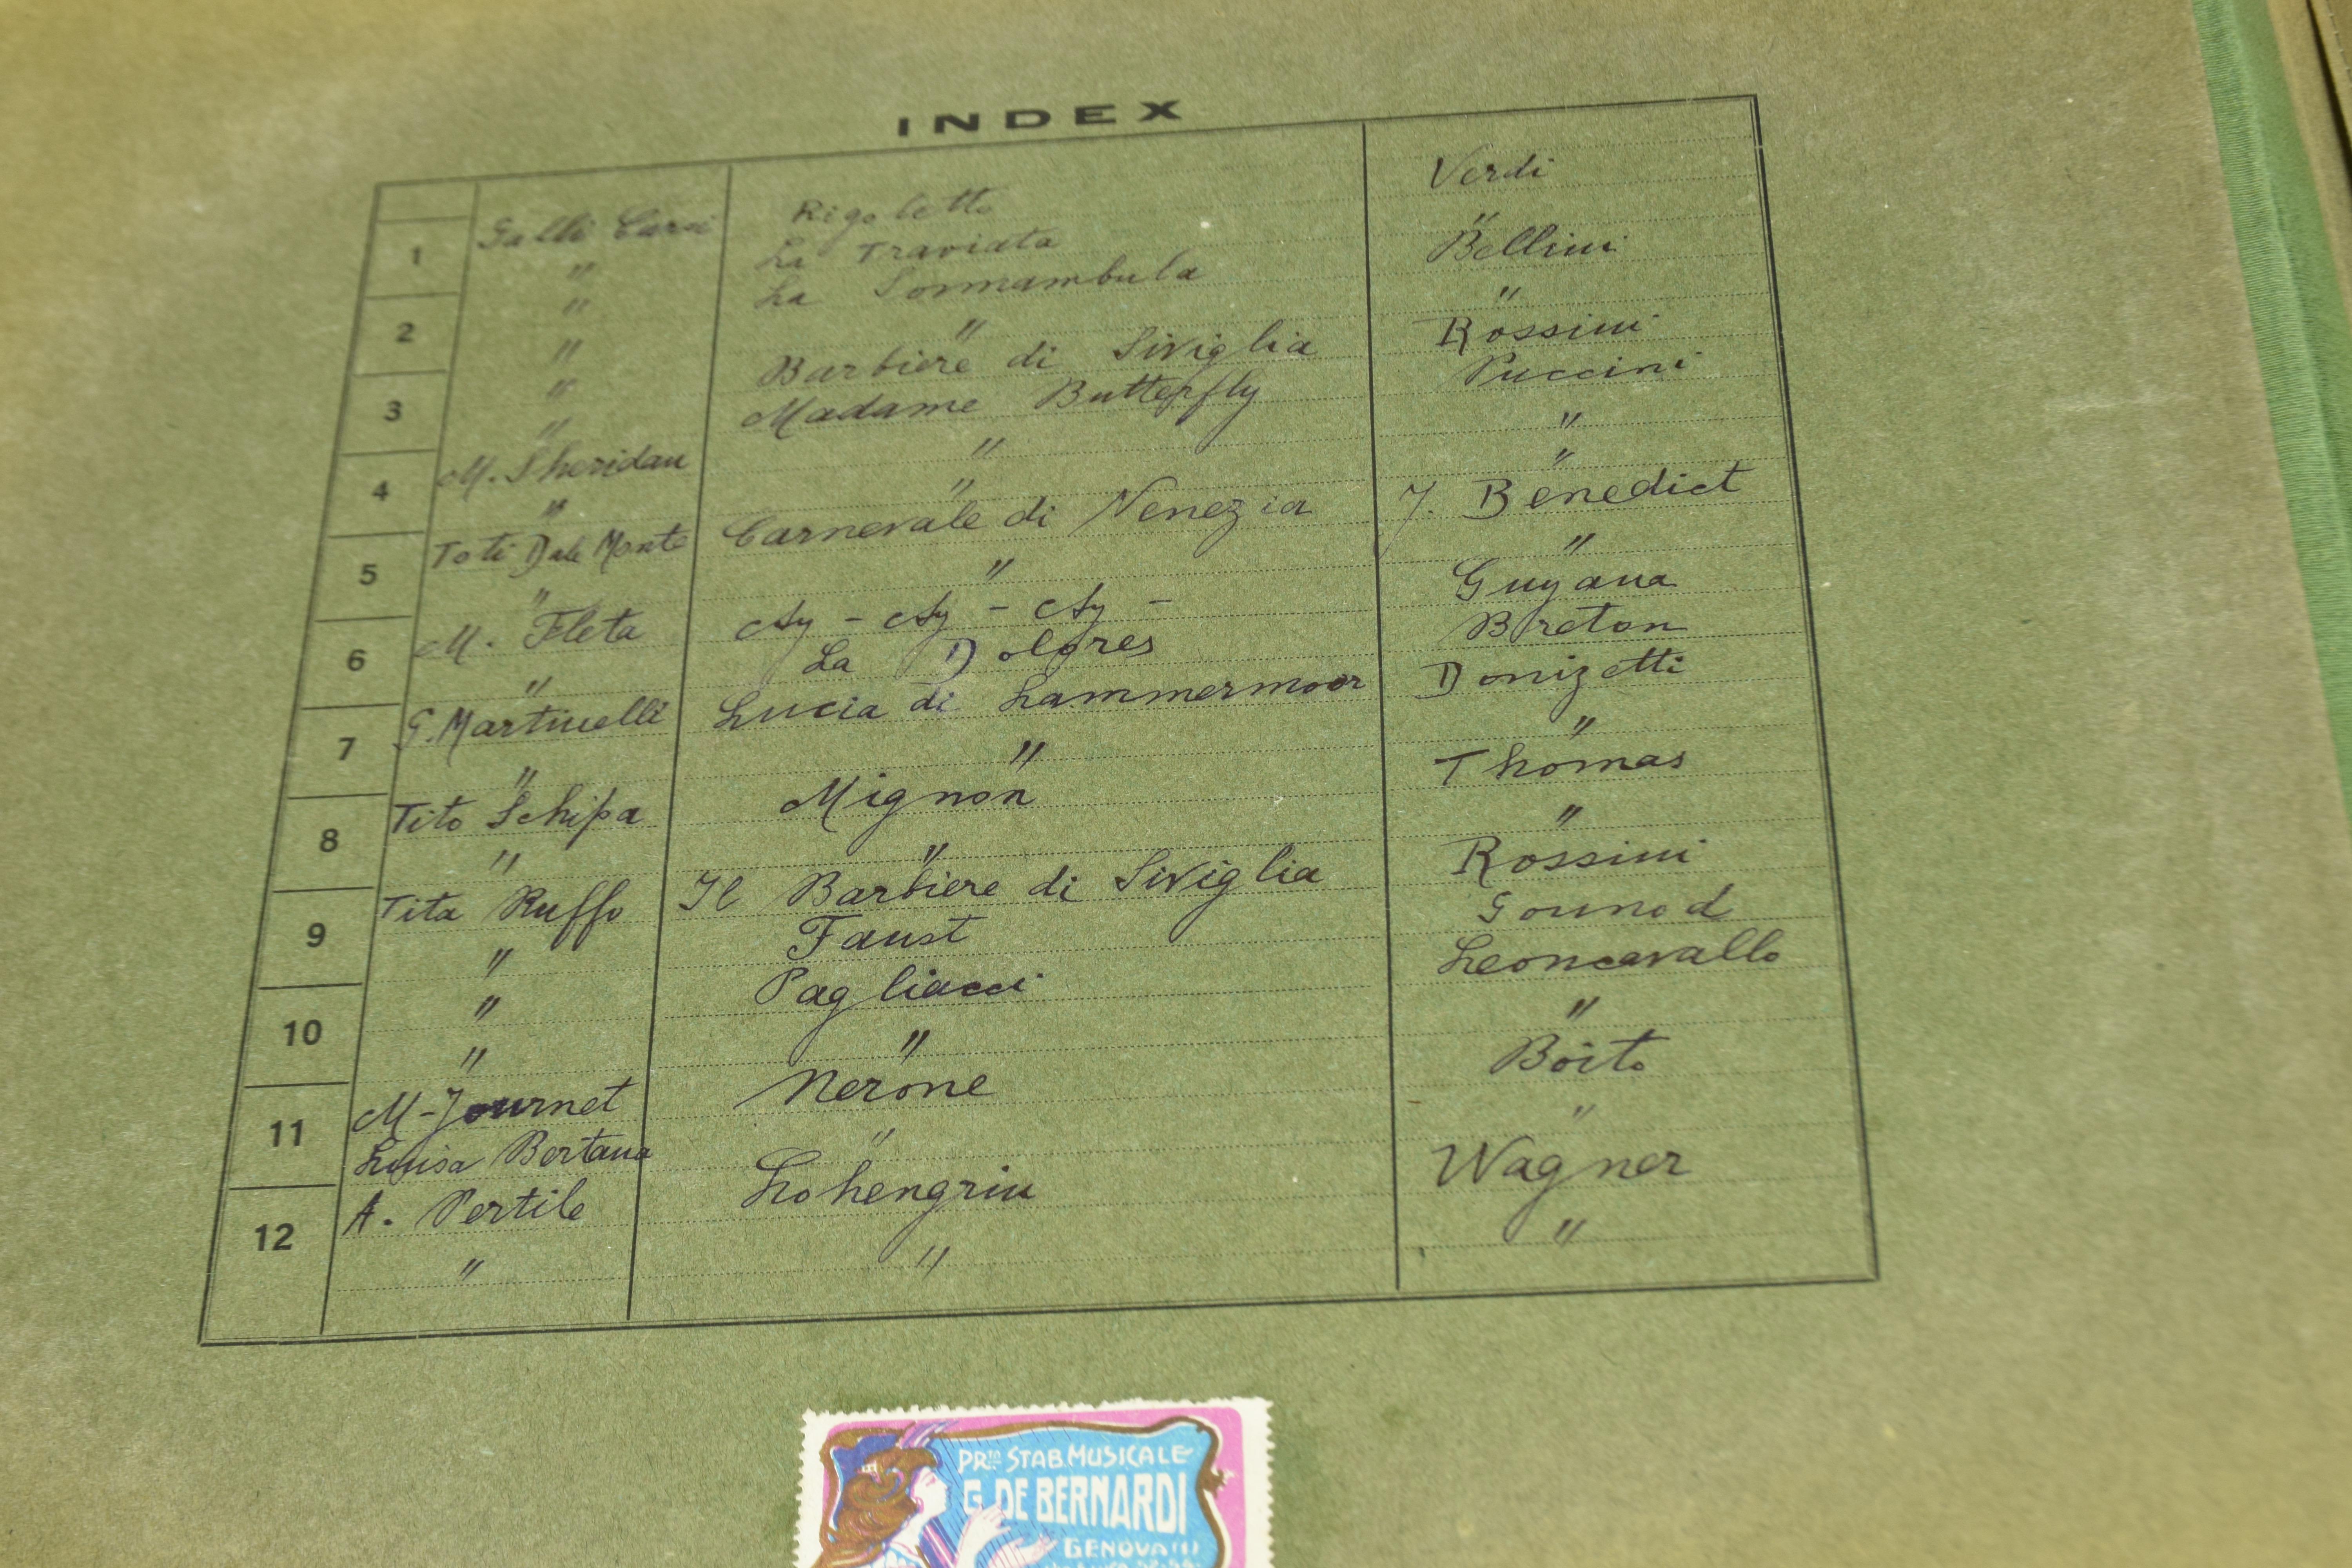 INDEX
1 Galli Curci Rigoletto Verdi
" La Traviata "
2 " La Sonnambula Bellini
" " "
3 " Barbiere di Siviglia Rossini
" Madame Butterfly Puccini
4 M. Sheridan " "
" " "
5 Toti Dale Monte Carnevale di Venezia J. Benedict
" " "
6 M. Fleta Ay - Ay - Ay - Guyana
" La Dolores Breton
7 G. Martinelli Lucia di Lammermoor Donizetti
" " "
8 Tito Schipa Mignon Thomas
" " "
9 Tita Ruffo Il Barbiere di Siviglia Rossini
" Faust Gounod
10 " Pagliacci Leoncavallo
" " "
11 M-Journet Nerone Boito
Luisa Bertana " "
12 A. Pertile Lohengrin Wagner
" " "
PR.TO STAB. MUSICALE
G. DE BERNARDI
GENOVA (1)